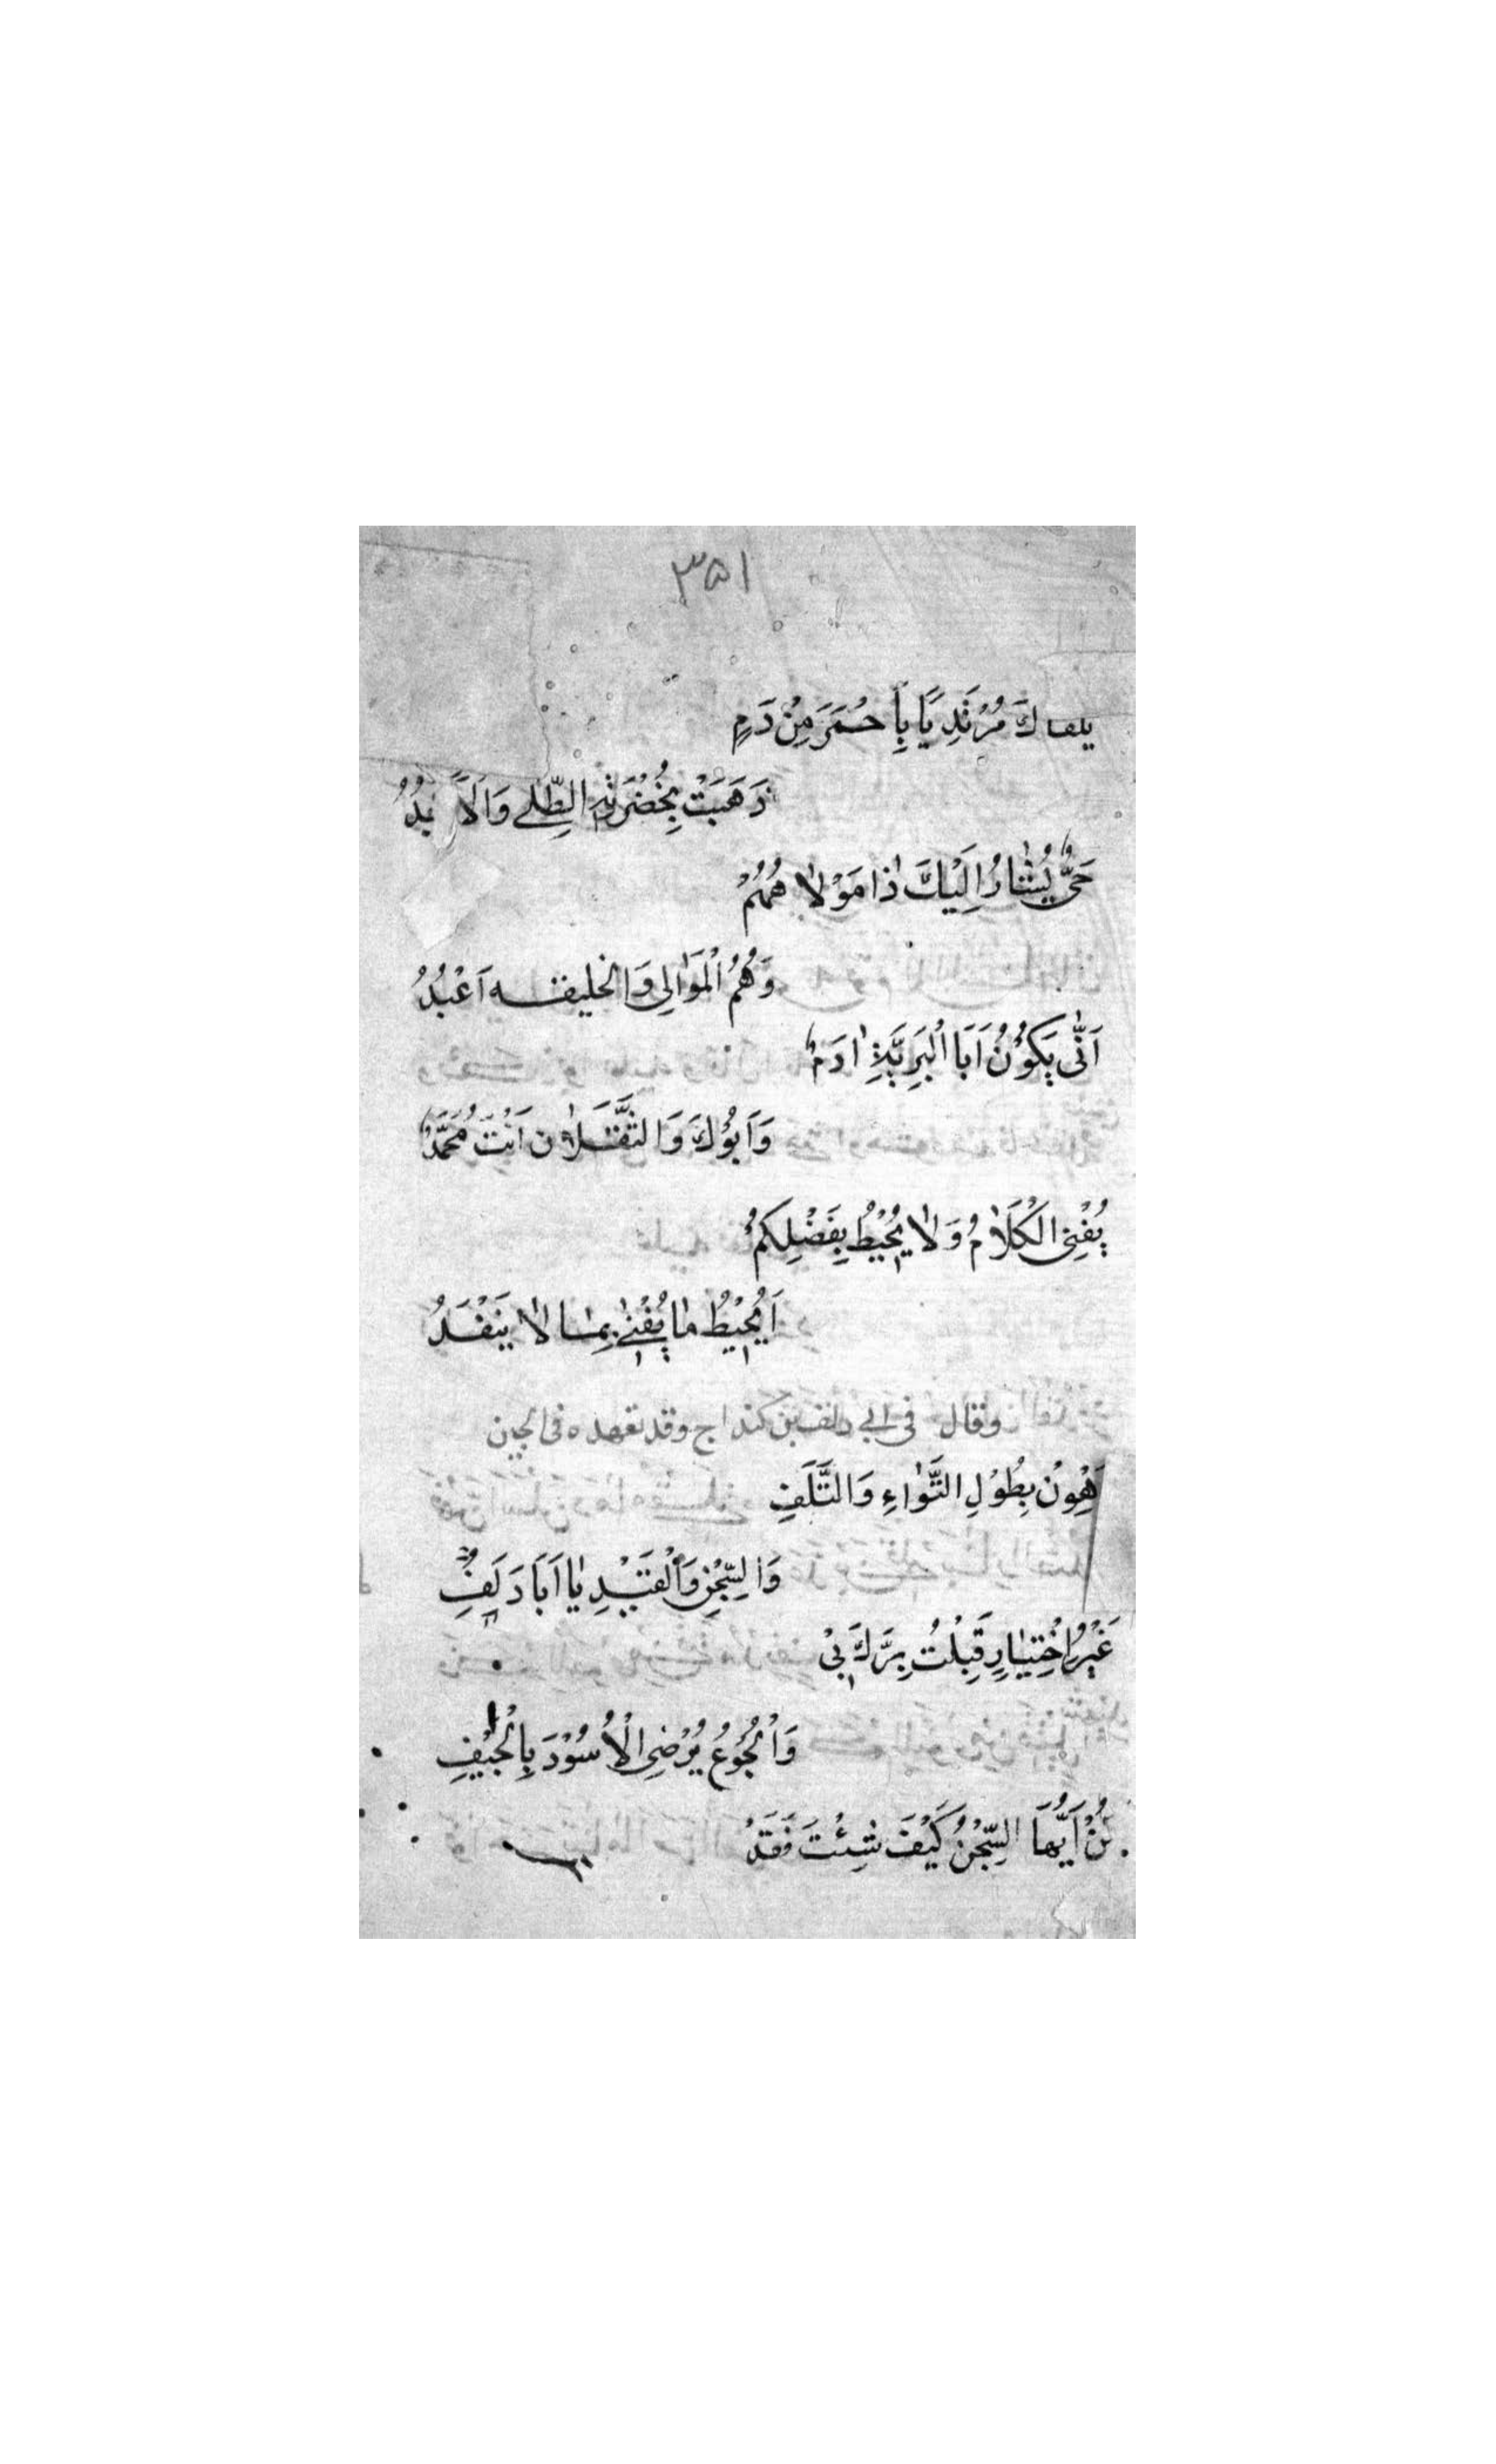 ۳۵۱
يلقاك مُرْتَدِيًا بِأَحْمَرَ مِنْ دَمٍ
ذَهَبَتْ بِخُضْرَتِهِ الطُّلٰى وَالْاَكْبُدُ
حَيٌّ يُشٰارُ اِلَيْكَ ذٰا مَوْلٰاهُمُ
وَهُمُ الْمَوَالِي وَالخليقه اَعْبُدُ
اَنّٰى يَكُوْنُ اَبَا الْبَرِيَّةِ اٰدَمٌ
وَاَبُوْكَ وَالثَّقَلٰانِ اَنْتَ مُحَمَّدٌ
يُفْنِى الْكَلٰامُ وَلٰا يُحِيْطُ بِفَضْلِكُمْ
اَيُحِيْطُ مٰا يُفْنٰى بِمٰا لٰا يَنْفَدُ
وقال فى ابى دلف بن كنداج وقد تعهده فى السجن
اَهْوِنْ بِطُوْلِ الثَّوٰاءِ وَالتَّلَفِ
وَالسِّجْنِ وَالْقَيْدِ يٰا اَبَا دُلَفٍ
غَيْرَ اخْتِيٰارٍ قَبِلْتُ بِرَّكَ بِيْ
وَالْجُوْعُ يُرْضِى الْاُسُوْدَ بِالْجِيَفِ
كُنْ اَيُّهَا السِّجْنُ كَيْفَ شِئْتَ فَقَدْ